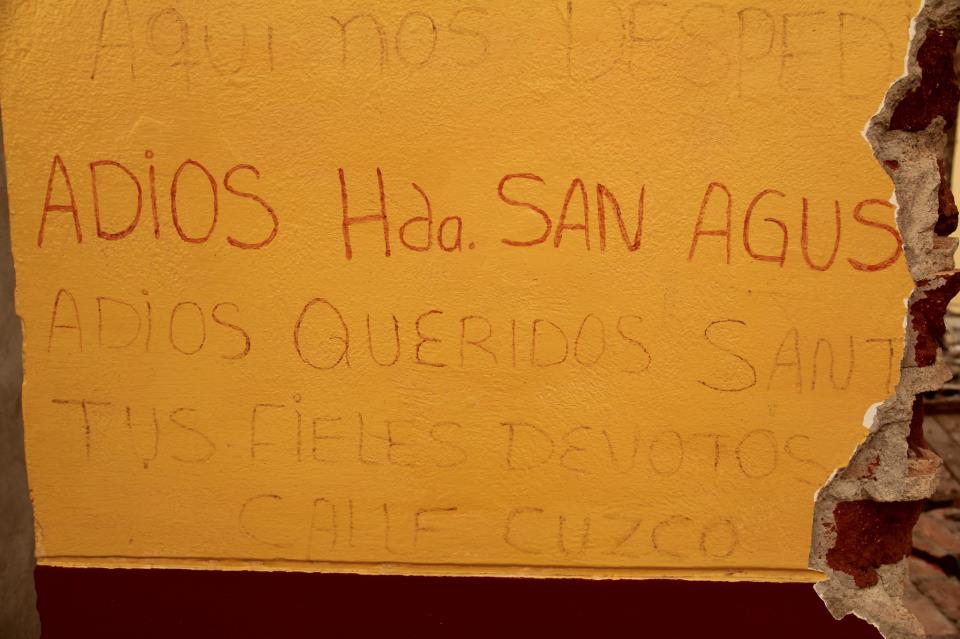 Aqui nos DESPED
ADiOS Hda. SAN AGUS
ADiOS QUERIDOS SANT
TUS FiELES DEVOTOS
CALLE CUZCO